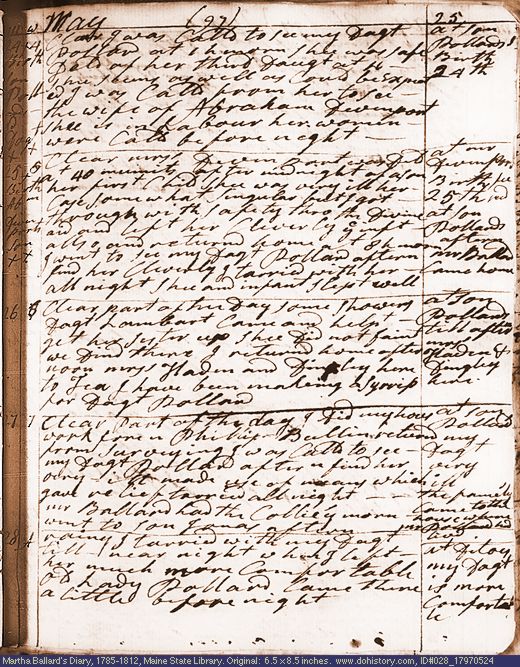 May (97) 25
Clear I was Calld to see my Dagt
Pollard at 5 h morn she was safe
Deld of her third Daught at
Shee seems as well as Could be Expect
ed I was Calld from her to see
the wife of Abraham Davenport
shee is in Labour her women
were Calld before night
at son
Pollards
Birth
24th
Clear mrs Devenport was Deld
at 40 minutes after midnight of a son
her first Child shee was very ill her
Case somewhat singular but got
through with safety thro the Divine
aid and left her Cleverly
also and returnd home at 8 h morn
I went to see my Dagt Pollard aftern
find her Cleverly I tarried with her
all night shee and infant slept well
at mr
Birth
25th
at son
Pollards
aftern
mr Ballard
Came home
26
Clear part of the Day some showers
Dagt Lambart Came and helpt
get her sister up shee did not faint
we Dind there I returnd home after
noon mrss Haden and Dingley here
to Tea I have been making a syrrip
for Dagt Pollard
at son
Pollards
till aftern
mrss
Haden &
Dingley
here
Clear part of the day I did my hous
work foren Philip Bullin returnd
from surveying I was Calld to see
my Dagt Pollard aftern find her
very ill made use of means which
gave relief tarried all night
mr Ballard had the Collic morn
went to son aftern
at son
Pollards
my
Dagt
very
ill
Came to the
hous
rainy I tarried with my Dagt
till near night when I left
her much more Comfortable
Old Lady Pollard Came there
a little before night
at Ditoes
my Dagt
is more
Comfortab
le
Martha Ballard's Diary, 1785-1812, Maine State Library. Original: 6.5 x 8.5 inches. www.dohistory.com, ID#028_17970524